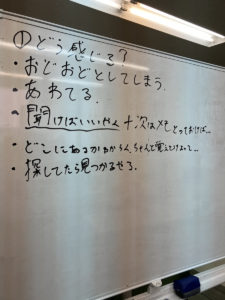 ①どう感じる?
・おどおどとしてしまう.
・あわてる.
・聞けばいいやん+次はメモとっておけば…
・どこにあるかわからん、ちゃんと覚えとけよって…
・探してたら見つかるやろ.